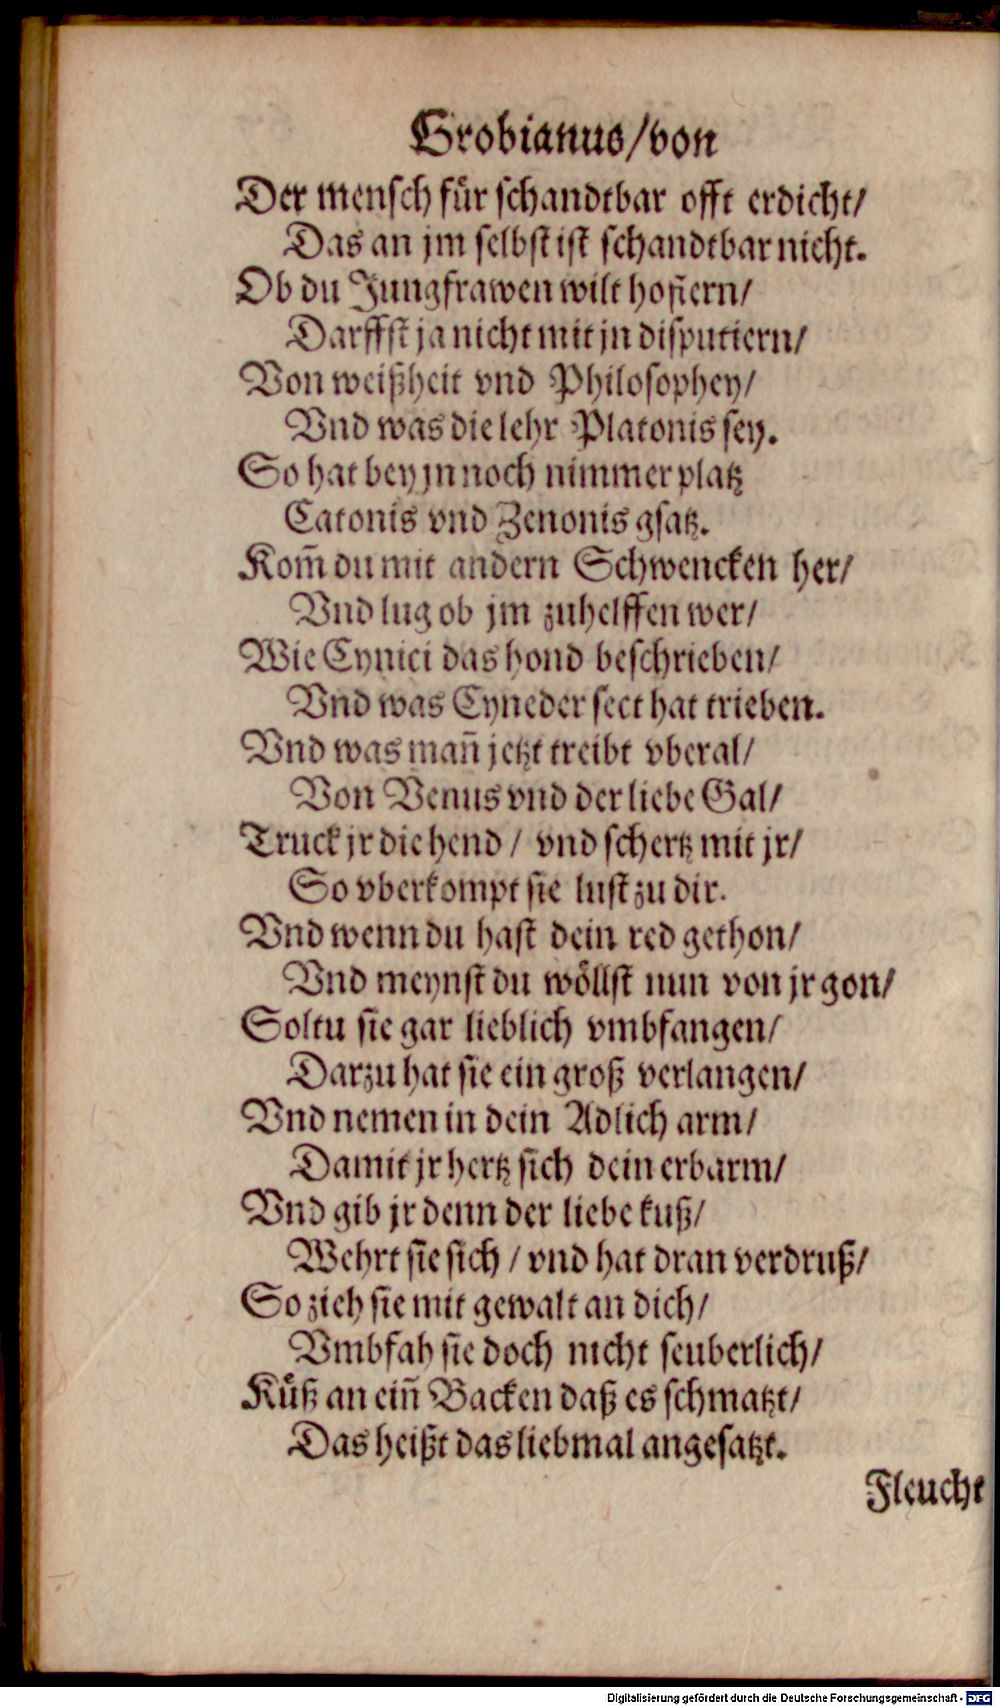 Grobianus/von
Der mensch für schandtbar offt erdicht/
Das an jm selbst ist schandtbar nicht.
Ob du Jungfrawen wilt hofiern/
Darffst ja nicht mit jn disputiern/
Von weißheit vnd Philosophey/
Vnd was die lehr Platonis sey.
So hat bey jn noch nimmer platz
Catonis vnd Zenonis gsatz.
Kom̃ du mit andern Schwencken her/
Vnd lug ob jm zuhelffen wer/
Wie Cynici das hond beschrieben/
Vnd was Cyneder sect hat trieben.
Vnd was man̄ jetzt treibt vberal/
Von Venus vnd der liebe Gal/
Truck jr die hend / vnd schertz mit jr/
So vberkompt sie lust zu dir.
Vnd wenn du hast dein red gethon/
Vnd meynst du wöllst nun von jr gon/
Soltu sie gar lieblich vmbfangen/
Darzu hat sie ein groß verlangen/
Vnd nemen in dein Adlich arm/
Damit jr hertz sich dein erbarm/
Vnd gib jr denn der liebe kuß/
Wehrt sie sich / vnd hat dran verdruß/
So zieh sie mit gewalt an dich/
Vmbfah sie doch nicht seuberlich/
Küß an ein̄ Backen daß es schmatzt/
Das heißt das liebmal angesatzt.
Fleucht
Digitalisierung gefördert durch die Deutsche Forschungsgemeinschaft - DFG